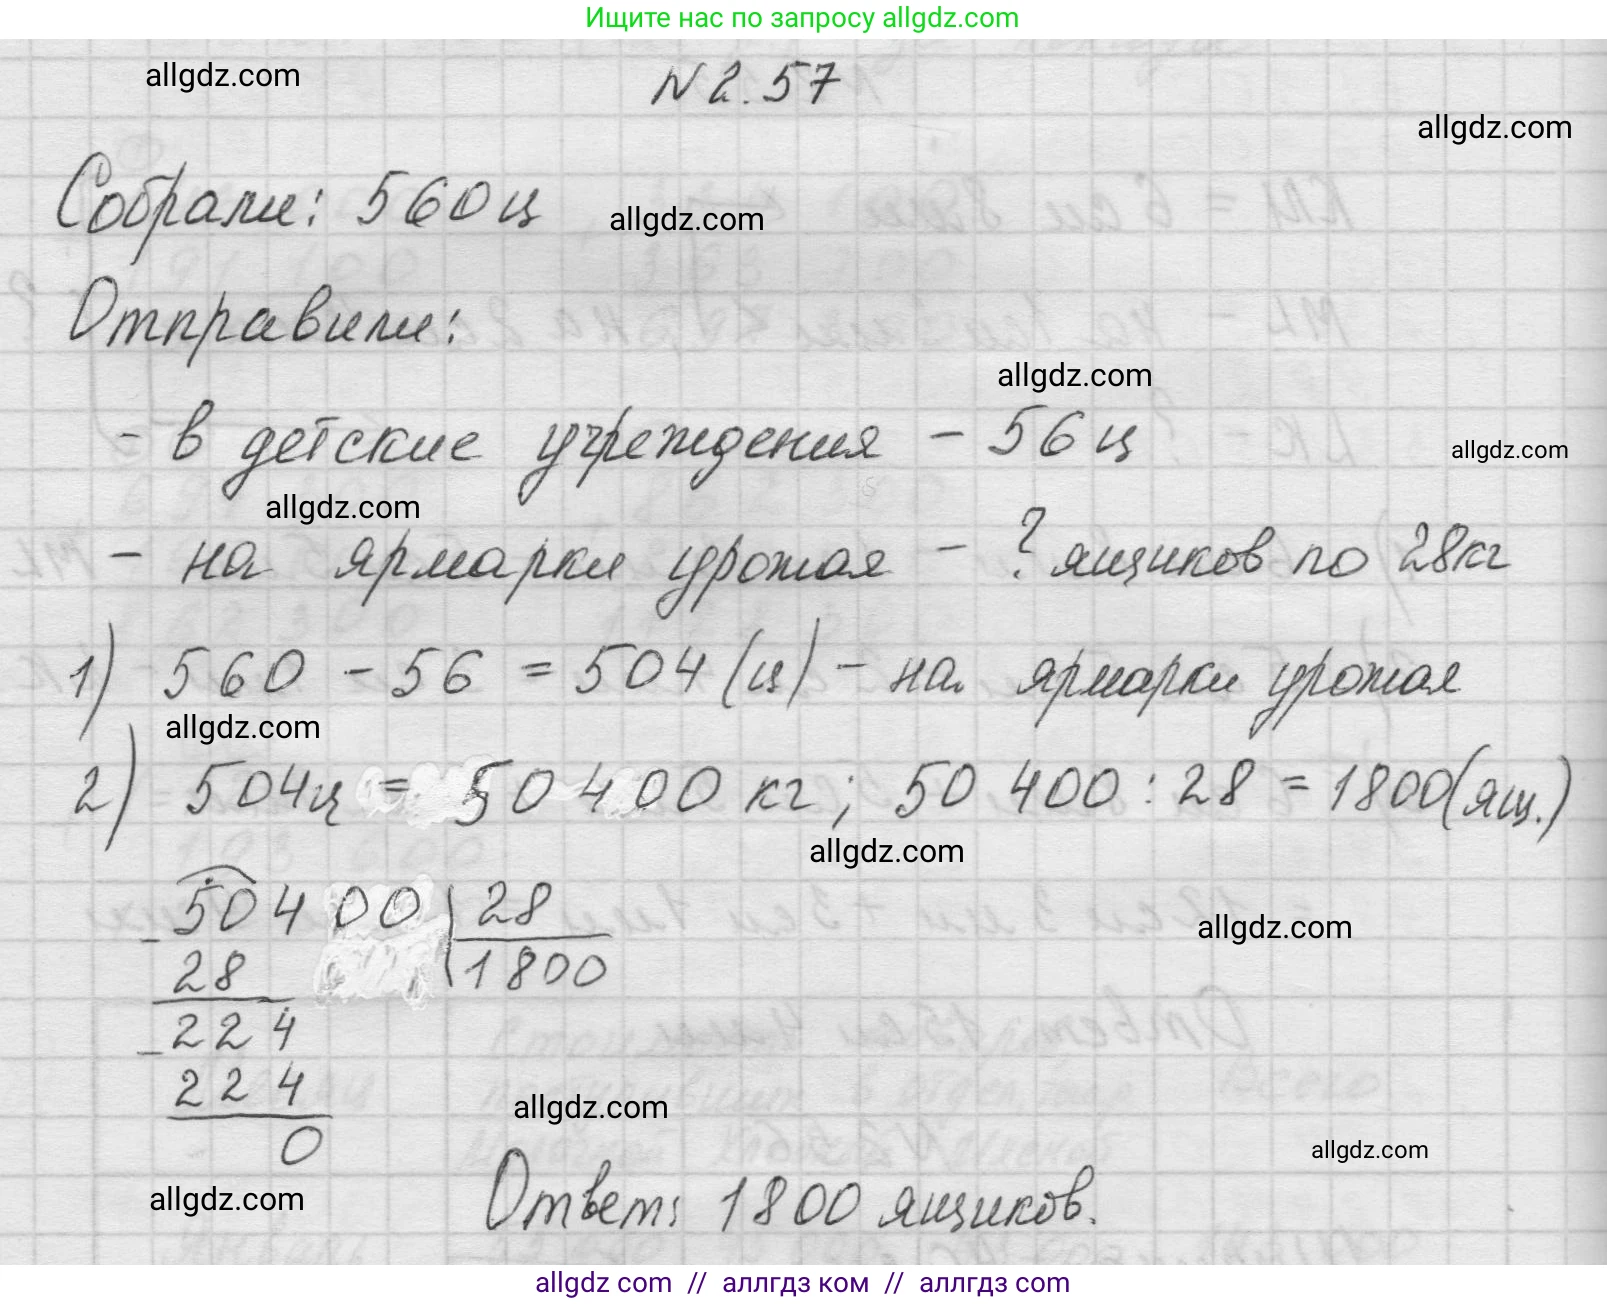 Ищите нас по запросу allgdz.com
allgdz.com
N 2.57
allgdz.com
Собрали: 560 ц
allgdz.com
Отправили:
allgdz.com
- в детские учреждения - 56 ц
allgdz.com
allgdz.com
- на ярмарки урожая - ? ящиков по 28 кг
1) 560 - 56 = 504 (ц) - на ярмарки урожая
allgdz.com
2) 504 ц = 50 400 кг ; 50 400 : 28 = 1800 (ящ.)
allgdz.com
50400 28
allgdz.com
- 28 1800
224
- 224
allgdz.com
0
allgdz.com
allgdz.com
Ответ: 1800 ящиков.
allgdz com // аллгдз ком // аллгдз com